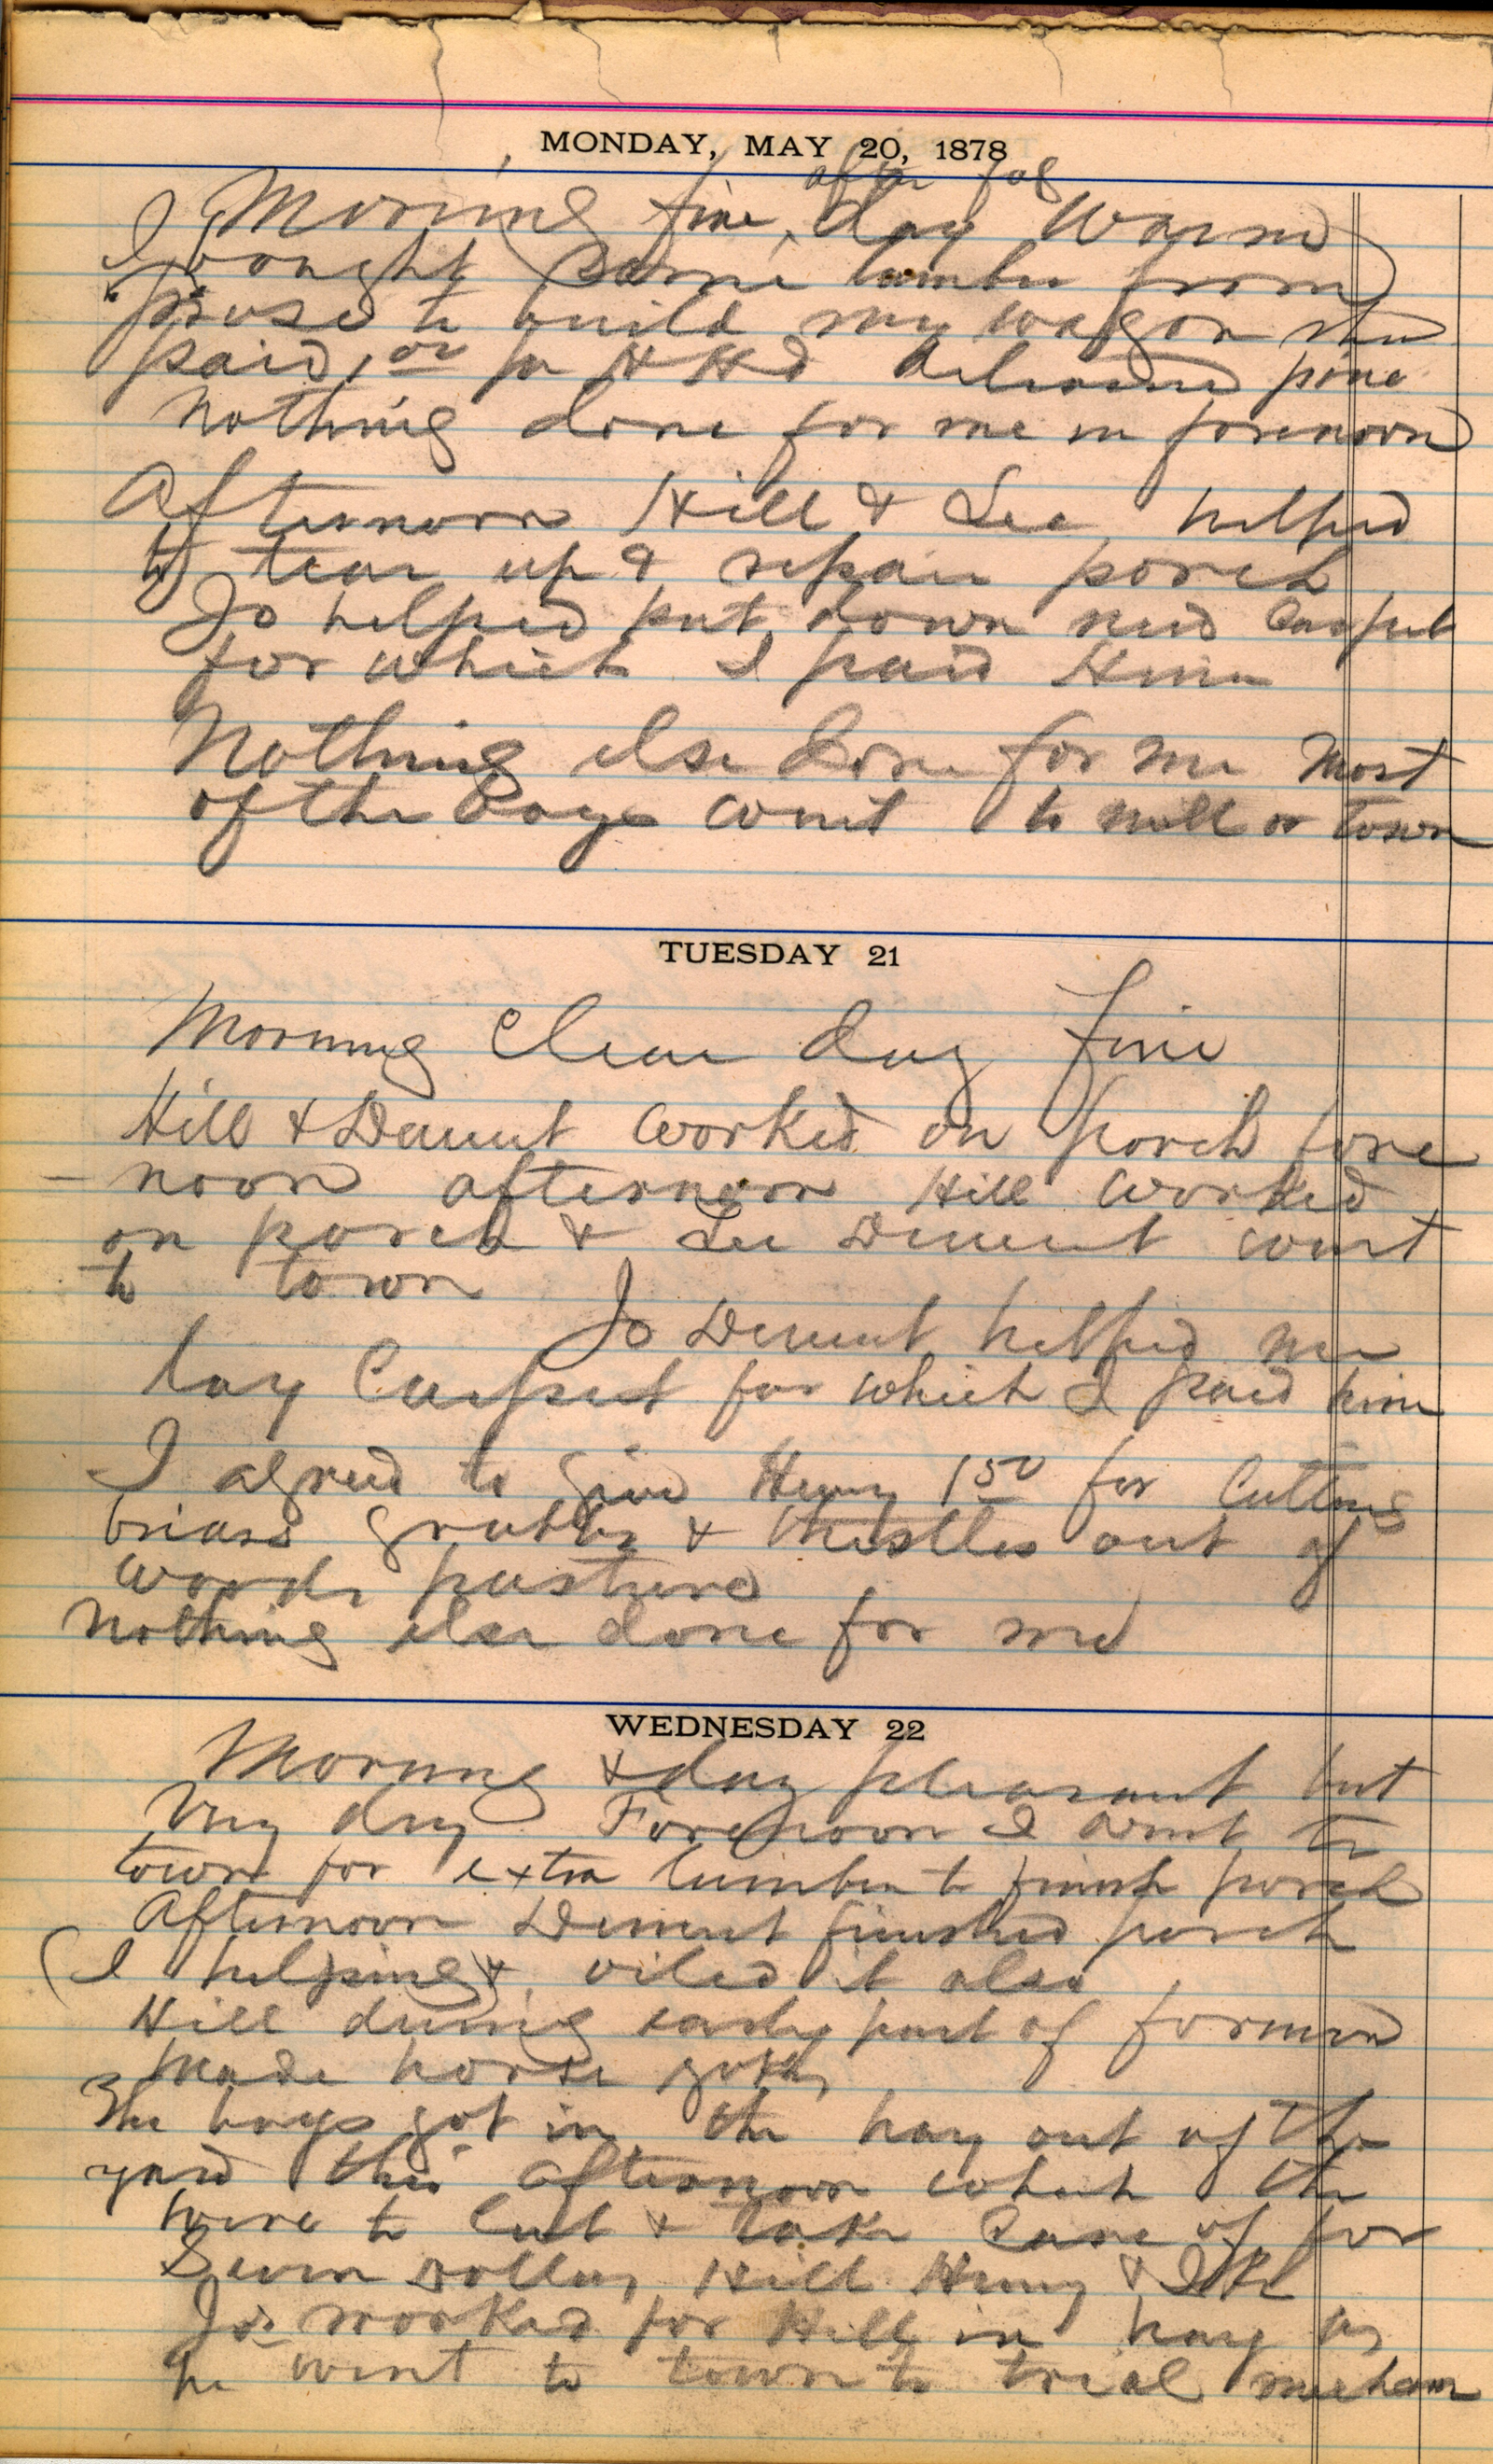 MONDAY, MAY 20, 1878
after fog
Morning fine, day warm
I bought some lumber from
to build my wagon
paid, or for delivered
Nothing done for me in forenoon
Afternoon Hill & Lee helped
to tear up & repair porch
Jo helped put down new Carpet
for which I paid Him
Nothing else done for me Most
of the Boys went to mill or town
TUESDAY 21
Morning Clear day fine
Hill & Dement worked on porch fore
-noon afternoon Hill worked
on porch & Lee Dement went
to town
Jo Dement helped me
lay Carpet for which I paid him
I agreed to give Henry 1 50 for Cutting
briars grubbs & thistles out of
woods pasture
Nothing else done for me
WEDNESDAY 22
Morning & day pleasant but
Very dry Forenoon I went to
town for extra lumber to finish porch
Afternoon Dement finished porch
(I helping) & oiled it also
Hill during early part of forenoon
made horse
The boys got in the hay out of the
yard this afternoon which the
were to Cut & take Care of for
Seven dollars, Hill Henry &
Jo worked for Hill in hay as
he went to town to trial